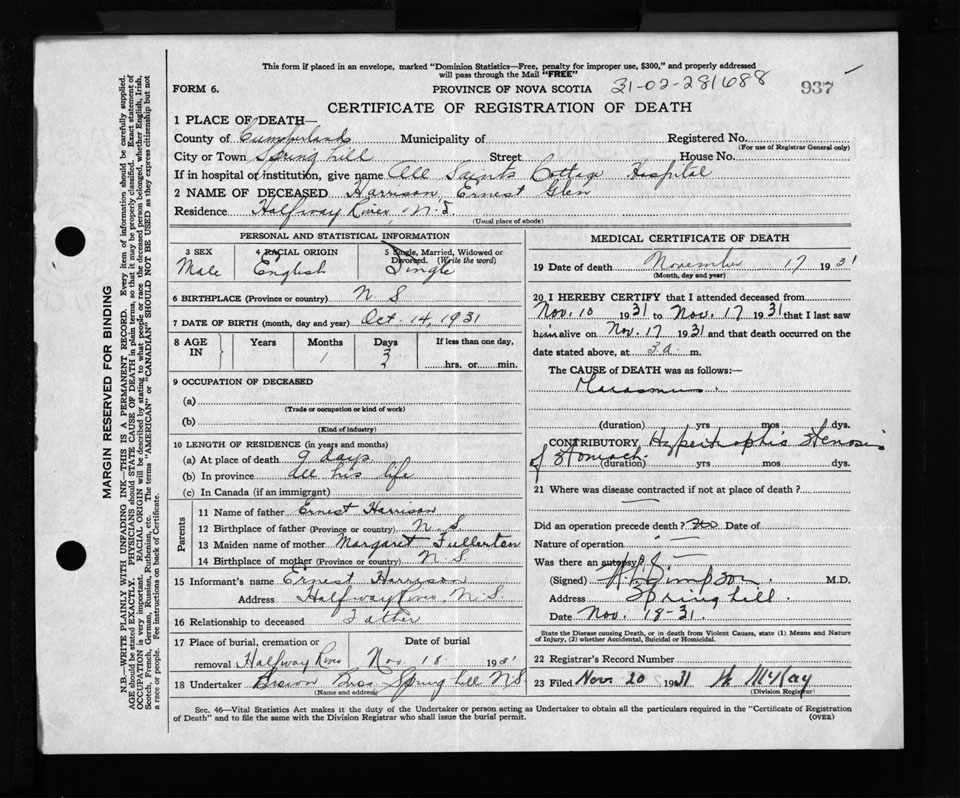 This form if placed in an envelope, marked "Dominion Statistics—Free, penalty for improper use, $300," and properly addressed
will pass through the Mail "FREE"
FORM 6. PROVINCE OF NOVA SCOTIA 31-02-281688 937
CERTIFICATE OF REGISTRATION OF DEATH
1 PLACE OF DEATH—
County of Cumberland Municipality of Registered No.
(For use of Registrar General only)
City or Town Spring hill Street House No.
If in hospital or institution, give name All Saints Cottage Hospital
2 NAME OF DECEASED Harrison, Ernest Glen
Residence Halfway River N.S.
(Usual place of abode)
PERSONAL AND STATISTICAL INFORMATION
3 SEX
Male
4 RACIAL ORIGIN
English
5 Single, Married, Widowed or
Divorced. (Write the word)
Single
6 BIRTHPLACE (Province or country) N S
7 DATE OF BIRTH (month, day and year) Oct. 14, 1931
8 AGE IN Years Months Days If less than one day,
1 3 hrs. or min.
9 OCCUPATION OF DECEASED
(a)
(Trade or occupation or kind of work)
(b)
(Kind of industry)
10 LENGTH OF RESIDENCE (in years and months)
(a) At place of death 9 days
(b) In province all his life
(c) In Canada (if an immigrant)
Parents
11 Name of father Ernest Harrison
12 Birthplace of father (Province or country) N. S.
13 Maiden name of mother Margaret Fullerton
14 Birthplace of mother (Province or country) N. S
15 Informant's name Ernest Harrison
Address Halfway River N. S.
16 Relationship to deceased Father
17 Place of burial, cremation or Date of burial
removal Halfway River Nov 18 1931
18 Undertaker Brown Bros Spring hill N S
(Name and address)
MEDICAL CERTIFICATE OF DEATH
19 Date of death November 17 1931
(Month, day and year)
20 I HEREBY CERTIFY that I attended deceased from
Nov. 10 1931 to Nov. 17 1931 that I last saw
him alive on Nov. 17 1931 and that death occurred on the
date stated above, at 3 a. m.
The CAUSE of DEATH was as follows:—
Marasmus.
(duration) yrs mos dys.
CONTRIBUTORY Hypertrophic Stenosis
of Stomach.
(duration) yrs mos dys.
21 Where was disease contracted if not at place of death?
Did an operation precede death? no Date of
Nature of operation
Was there an autopsy?
(Signed) Simpson. M.D.
Address Spring hill.
Date Nov. 18-31.
State the Disease causing Death, or in death from Violent Causes, state (1) Means and Nature
of Injury, (2) whether Accidental, Suicidal or Homicidal.
22 Registrar's Record Number
23 Filed Nov. 20 1931 McKay
(Division Registrar)
Sec. 46—Vital Statistics Act makes it the duty of the Undertaker or person acting as Undertaker to obtain all the particulars required in the "Certificate of Registration
of Death" and to file the same with the Division Registrar who shall issue the burial permit. (OVER)
MARGIN RESERVED FOR BINDING
N.B.—WRITE PLAINLY WITH UNFADING INK—THIS IS A PERMANENT RECORD. Every item of information should be carefully supplied.
AGE should be stated EXACTLY. PHYSICIANS should STATE CAUSE OF DEATH in plain terms, so that it may be properly classified. Exact statement of
OCCUPATION is very important. RACIAL ORIGIN will be described by stating to what people or race the deceased person belonged, whether English, Irish,
Scotch, French, German, Russian, Ruthenian, etc. The terms "AMERICAN" or "CANADIAN" SHOULD NOT BE USED as they express citizenship but not
a race or people. Fee instructions on back of Certificate.